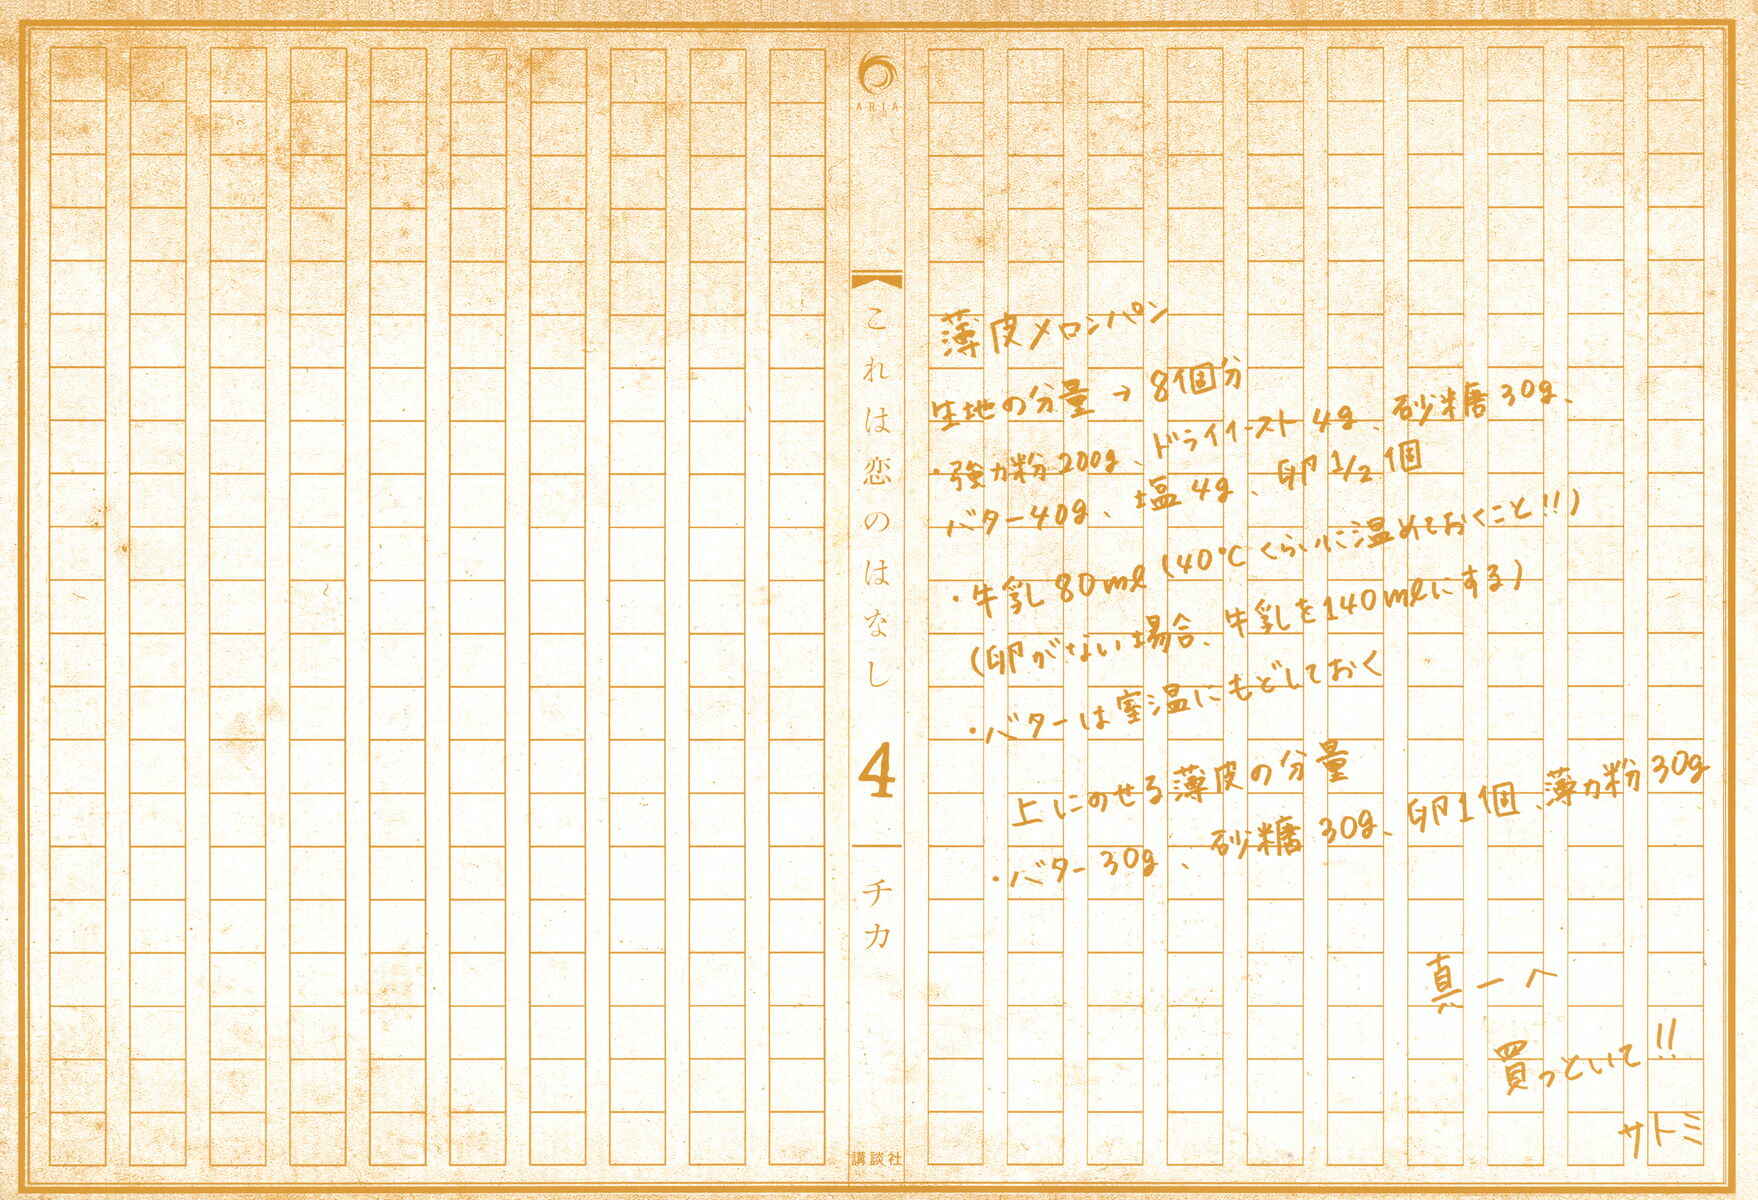 ARIA
これは恋のはなし
4
チカ
講談社
薄皮メロンパン
生地の分量→8個分
・強力粉200g、ドライイースト4g、砂糖30g、
バター40g、塩4g、卵1/2個
・牛乳80ml(40℃くらいに温めておくこと!!)
(卵がない場合、牛乳を140mlにする)
・バターは室温にもどしておく
上にのせる薄皮の分量
・バター30g、砂糖30g、卵1個、薄力粉30g
真一へ
買っといて!!
サトミ